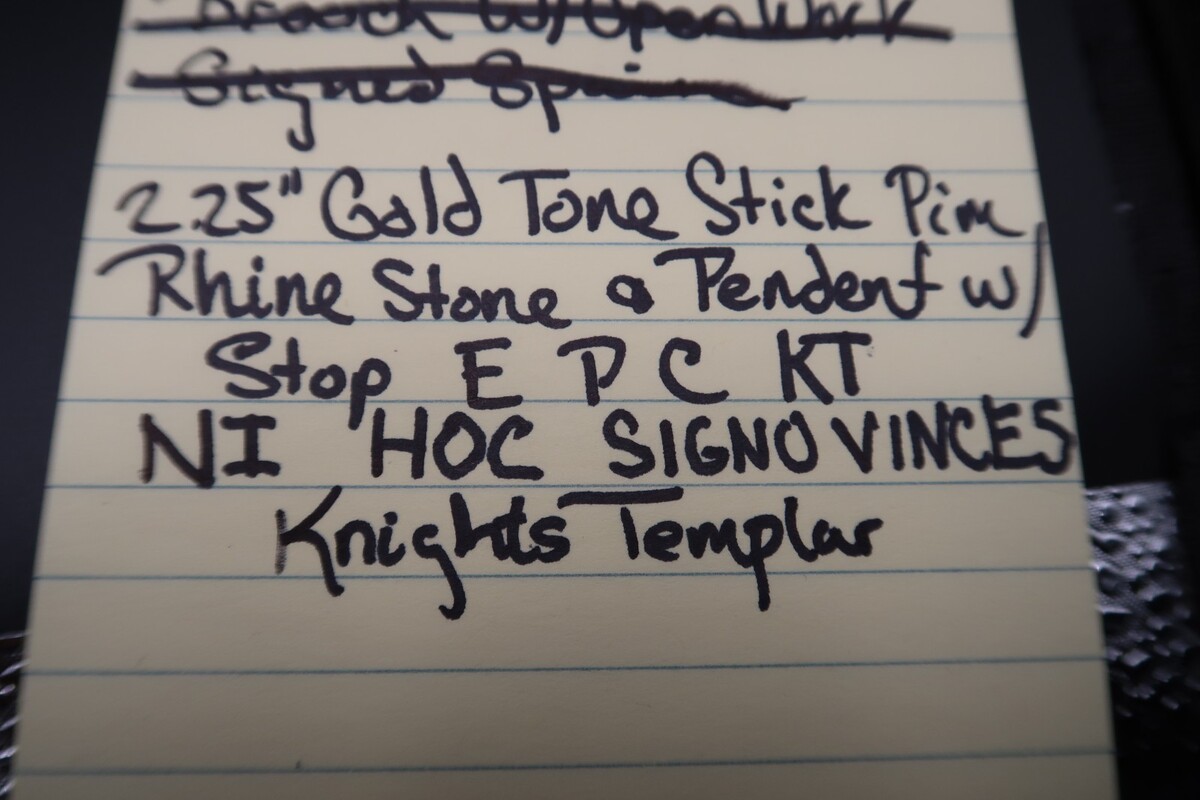 Brooch w/ Open Work
Signed Spain
2.25" Gold Tone Stick Pin
Rhine Stone & Pendent w/
Stop E P C KT
NI HOC SIGNO VINCES
Knights Templar